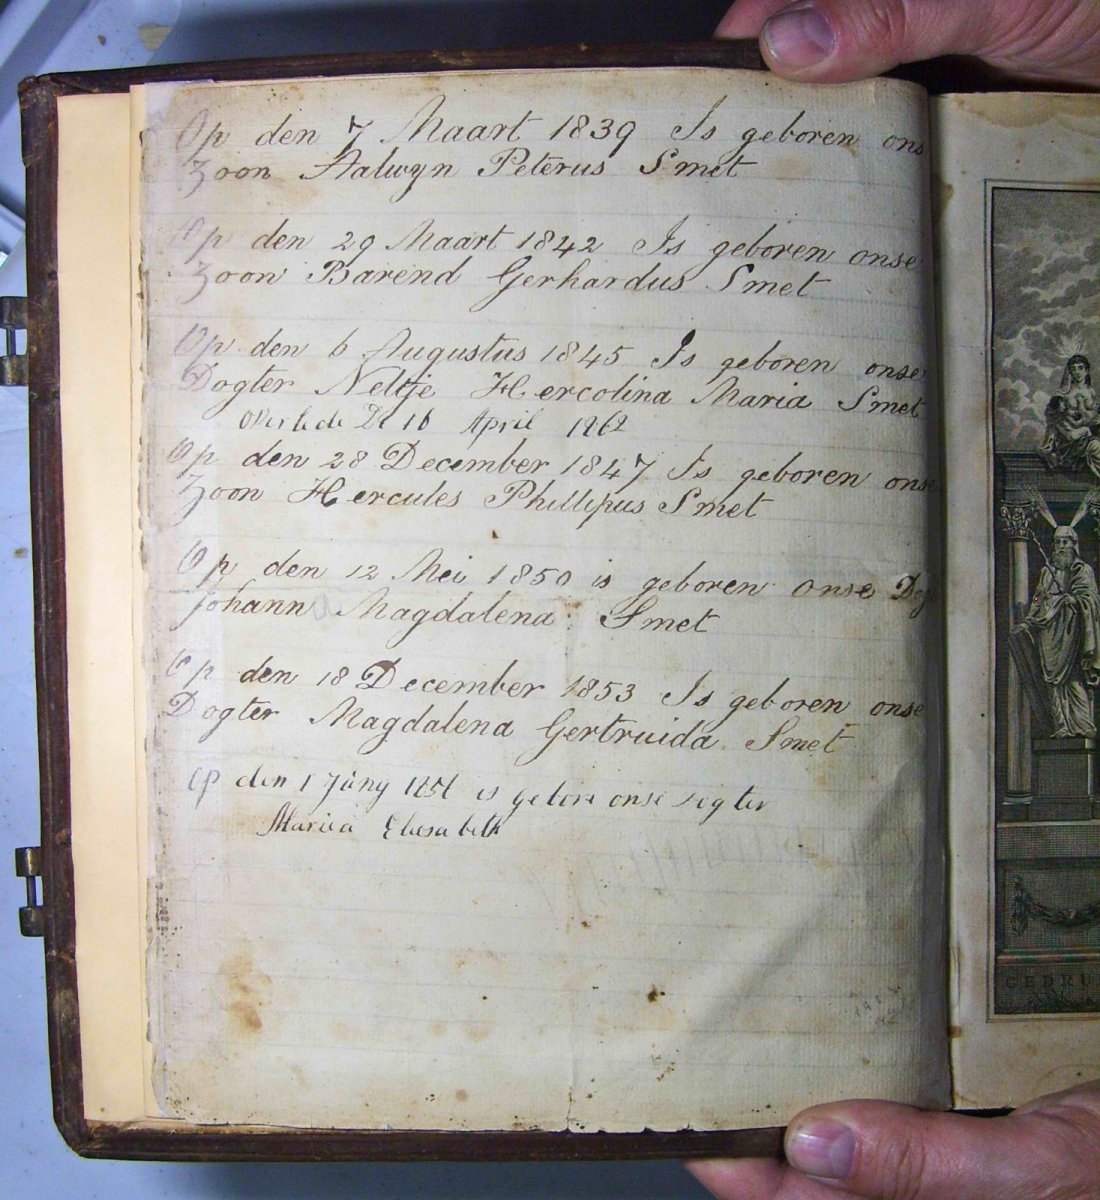 Op den 7 Maart 1839 Is geboren ons
Zoon Aalwyn Peterus Smet
Op den 29 Maart 1842 Is geboren onse
Zoon Barend Gerhardus Smet
Op den 6 Augustus 1845 Is geboren onse
Dogter Neltje Hercolina Maria Smet
Overlede De 16 April 1862
Op den 28 December 1847 Is geboren onse
Zoon Hercules Phillipus Smet
Op den 12 Mei 1850 is geboren onse Dog
Johann Magdalena Smet
Op den 18 December 1853 Is geboren onse
Dogter Magdalena Gertruida Smet
Op den 1 Juny is gebore onse dogter
Maria Elesabeth
GEDRU